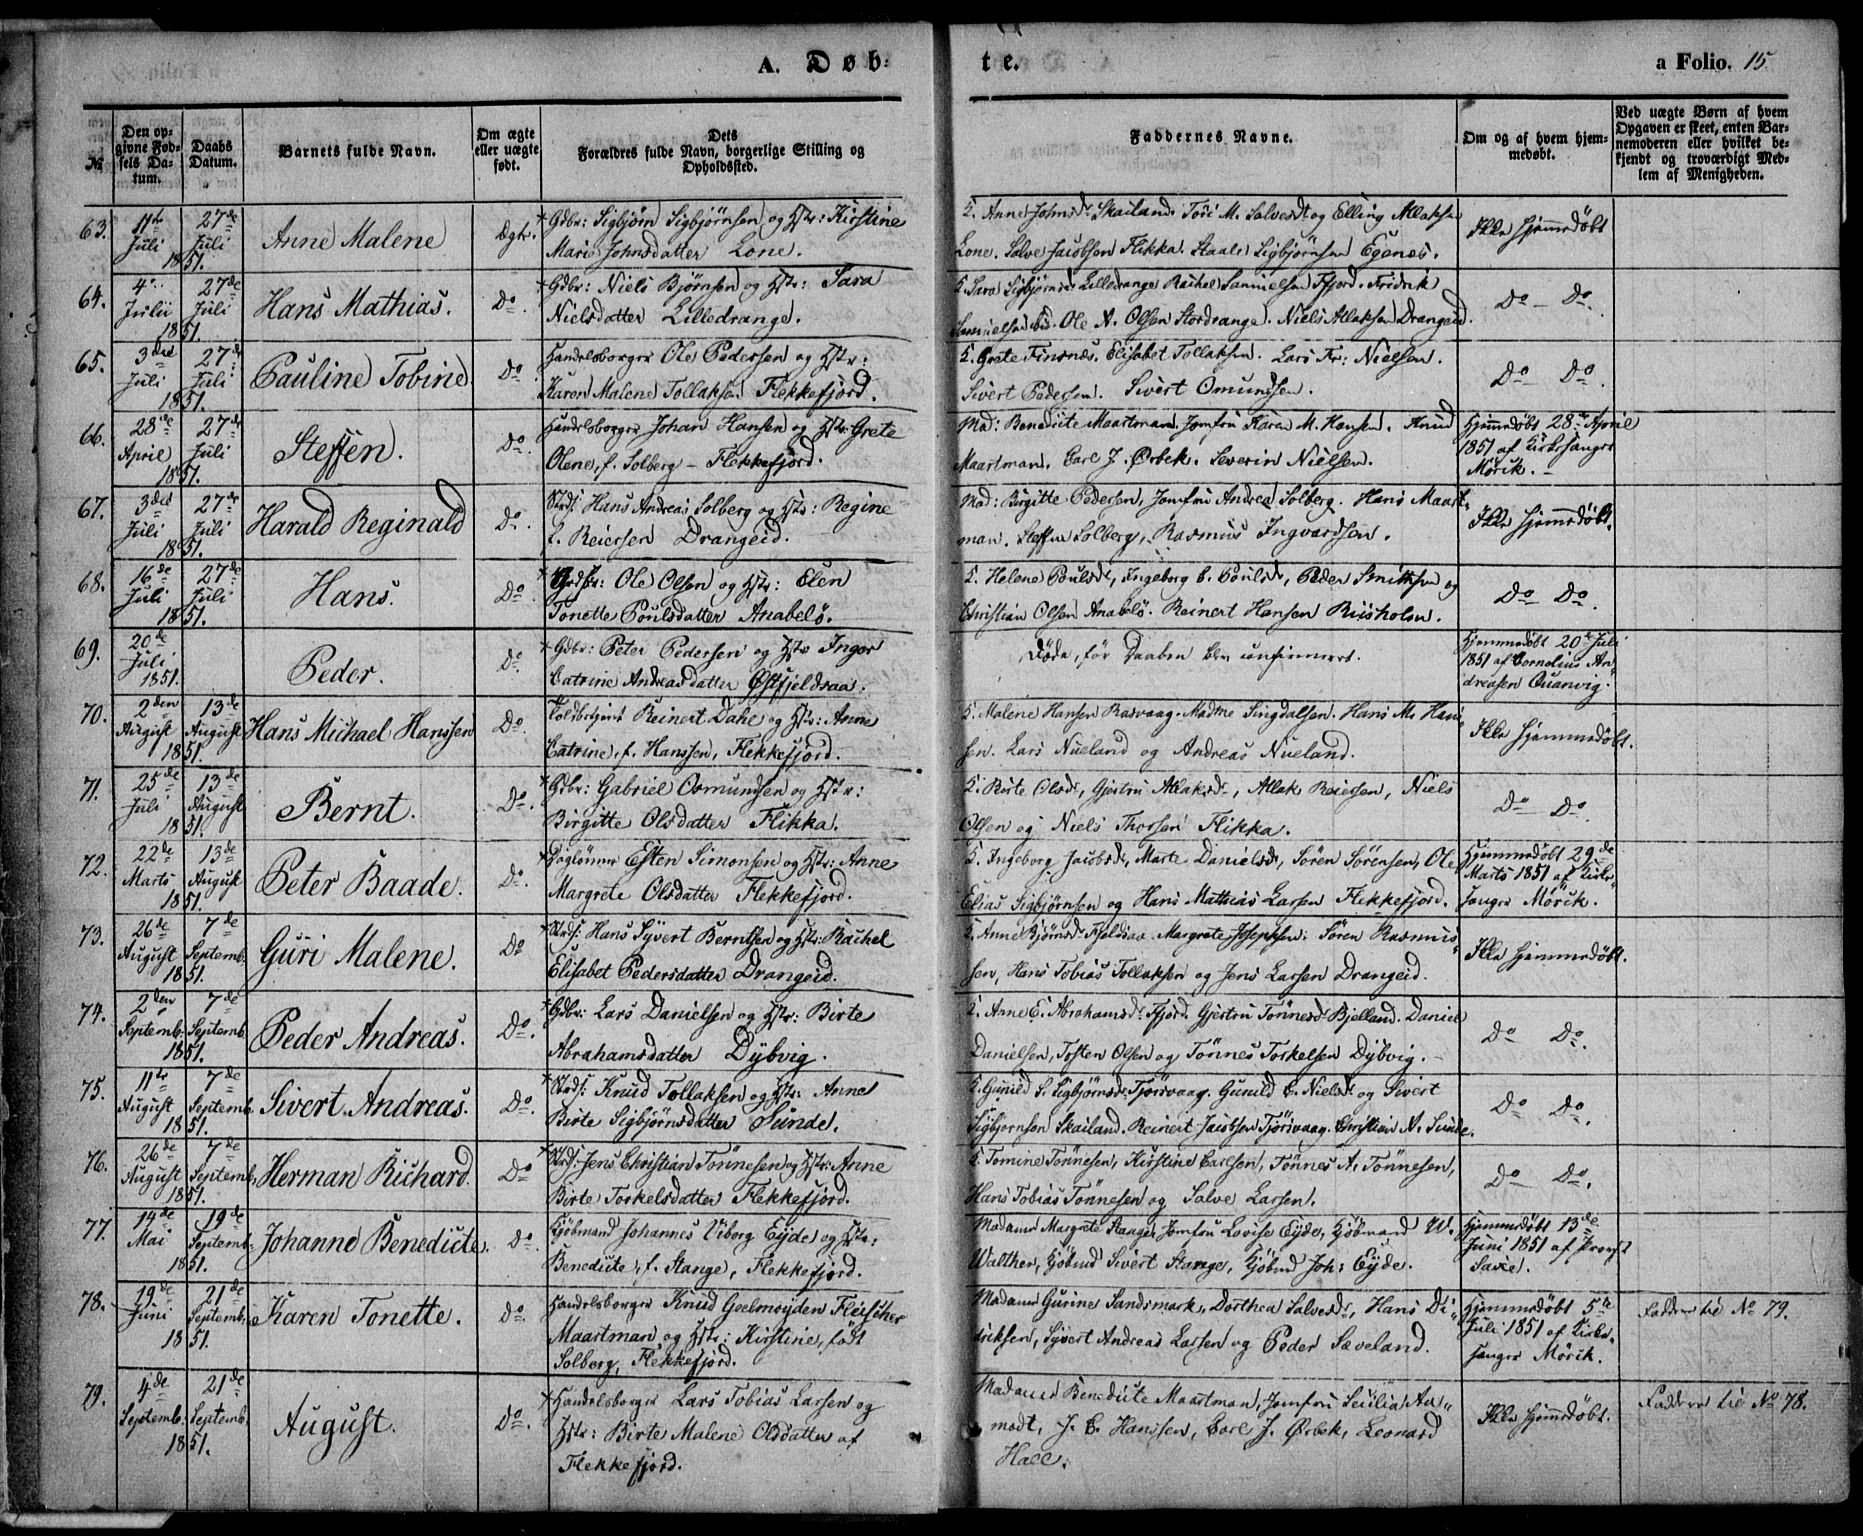 A. Døb-
te.
a Folio. 15
No
Den op-
givne Fød-
sels Da-
tum.
Daabs
Datum.
Barnets fulde Navn.
Om ægte
eller uægte
født.
Dets
Forældres fulde Navn, borgerlige Stilling og
Opholdssted.
Faddernes Navne.
Om og af hvem hjem-
medøbt.
Ved uægte Børn af hvem
Opgaven er skeet, enten Bar-
nemoderen eller hvilket be-
kjendt og troværdigt Med-
lem af Menigheden.
63. 11te Juli 1851. 27de Juli Anne Malene Ægte.
Gdbr: Sigbjørn Sigbjørnsen og Hstr: Kirstine
Marie Johnsdatter Lone.
F. Anne Johnsd. Skailand. Tori M. Salvesdt og Elling Atlaksen
Lone. Salve Jacobsen Flikka. Staale Sigbjørnsen Egenæs.
Ikke hjemmedøbt
64. 4de Julii 1851. 27de Juli Hans Mathias. Do.
Gdbr: Niels Bjørnsen og Hstr: Sara
Nielsdatter Lilledrange.
F. Sara Sigbjørnsd. Lilledrange Rachel Samuelsen Fjord. Fridrik
Samuelsen ibid. Ole A. Olsen Stordrange. Niels Atlaksen Drangeid.
Do – Do.
65. 3die Juli 1851. 27de Juli Pauline Tobine Do.
Handelsborger Ole Pedersen og Hstr:
Karen Malene Tollaksen Flekkefjord.
F. Grete Finsnæs. Elisabet Tollaksen. Lars Fr: Nielsen.
Sivert Pedersen. Sivert Omundsen.
Do – Do.
66. 28de April 1851. 27de Juli Steffen. Do.
Handelsborger Johan Hansen og Hstr: Grete
Olene, f. Solberg – Flekkefjord.
Mad: Benedicte Maartman. Jomfru Karen M. Hansen. Knud
Maartman. Carl J. Ørbek. Severin Nielsen.
Hjemmedøbt 28de April
1851 af Kirkesanger
Mörik. –
67. 3die Juli 1851. 27de Juli Harald Reginald Do.
Strds: Hans Andreas Solberg og Hstr: Regine
f. Reiersen Drangeid.
Mad: Birgitte Pedersen, Jomfru Andrea Solberg. Hans Maart-
man. Steffen Solberg, Rasmus Ingvardsen.
Ikke hjemmedøbt.
68. 16de Juli 1851. 27de Juli Hans. Do.
Gdbr: Ole Olsen og Hstr: Elen
Tonette Poulsdatter Anabelø.
F. Helene Poulsdt, Ingeborg C. Poulsdt, Peder Smithsen og
Christian Olsen Anabelø. Reinert Hansen Riisholm.
Do – Do.
69. 20de Juli 1851. Peder. Do.
Gdbr: Peter Pedersen og Hstr Inger
Catrine Andreasdatter Østfjeldsaa.
Døde, før Daaben blev confirmeret.
Hjemmedøbt 20de Juli
1851 af Cornelius An-
dreasen Qvanvig.
70. 2den August 1851. 13de August Hans Michael Hanssen Do.
Toldbetjent Reinert Dahl og Hstr: Anne
Catrine, f. Hanssen, Flekkefjord.
F. Malene Hansen Rasvaag. Madme Singdalsen. Hans M. Han-
sen. Lars Nueland og Andreas Nueland.
Ikke hjemmedøbt.
71. 25de Juli 1851. 13de August Bernt. Do.
Gdbr: Gabriel Osmundsen og Hstr:
Birgitte Olsdatter Flikka.
F. Birte Olsdt, Gjertru Atlaksdt, Atlak Reiersen, Niels
Olsen og Niels Thorsen Flikka.
Do – Do.
72. 22de Marts 1851. 13de August Peter Baade. Do.
Daglønner Esten Simonsen og Hstr: Anne
Margrete Olsdatter Flekkefjord.
F. Ingeborg Jacobsdt, Marte Danielsdt, Sören Sörensen, Ole
Elias Sigbjørnsen og Hans Mathias Larsen Flekkefjord.
Hjemmedøbt 29de
Marts 1851 af Kirke-
sanger Mörik.
73. 26de August 1851. 7de Septemb. Guri Malene. Do
Strds: Hans Syvert Berntsen og Hstr: Rachel
Elisabet Pedersdatter Drangeid.
F. Anne Bjørnsdt Fjeldsaa. Margrete Josephsen. Sören Rasmus-
sen, Hans Tobias Tollaksen og Jens Larsen Drangeid.
Ikke hjemmedøbt.
74. 2den Septemb. 1851. 7de Septemb. Peder Andreas. Do.
Gdbr: Lars Danielsen og Hstr: Birte
Abrahamsdatter Dybvig.
F. Anne E. Abrahamsdt Fjord. Gjertru Tönnesdt Bjelland. Daniel
Danielsen, Tosten Olsen og Tönnes Torkelsen Dybvig. –
Do Do.
75. 11te August 1851. 7de Septemb. Sivert Andreas. Do.
Strds: Knud Tollaksen og Hstr: Anne
Birte Sigbjørnsdatter Sunde.
F. Gunild S. Sigbjørnsdt Tjörsvaag. Gunild C. Nielsdt og Sivert
Sigbjørnsen Skailand. Reinert Jacobsen Tjörsvaag. Christian A. Sunde.
Do Do.
76. 26de August 1851. 7de Septemb. Herman Richard. Do
Strds: Jens Christian Tönnesen og Hstr: Anne
Birte Torkelsdatter Flekkefjord.
F. Tomine Tönnesen, Kirstine Carlsen, Tönnes A. Tönnesen,
Hans Tobias Tönnesen og Salve Larsen.
Do Do.
77. 14de Mai 1851. 19de Septemb. Johanne Benedicte. Do.
Kjöbmand Johannes Viborg Eyde og Hstr:
Benedicte, f. Stange, Flekkefjord.
Madame Margrete Stange, Jomfru Lovise Eyde, Kjöbmand W.
Walther, Kjöbmd Sivert Stange, Kjöbmd Joh: Eyde.
Hjemmedøbt 13de
Juni 1851 af Provst
Saxe.
78. 19de Juni 1851. 21de Septemb. Karen Tonette. Do
Handelsborger Knud Geelmuyden Fleischer
Maartman og Hstr: Kirstine, født
Solberg, Flekkefjord.
Madame Gurine Sandsmark, Dorthea Salvesdt, Hans Di-
driksen, Syvert Andreas Larsen og Peder Sæveland.
Hjemmedøbt 5te
Juli 1851 af Kirke-
sanger Mörik.
Faddere til No 79.
79. 4de Septemb. 1851. 21de Septemb. August. Do.
Handelsborger Lars Tobias Larsen og
Hstr: Birte Malene Olsdatter af
Flekkefjord.
Madame Benedicte Maartman, Jomfru Secilia Aa-
modt, J. C. Hanssen, Carl J. Ørbek, Leonard
Hall.
Ikke hjemmedøbt.
Faddere til No 78.